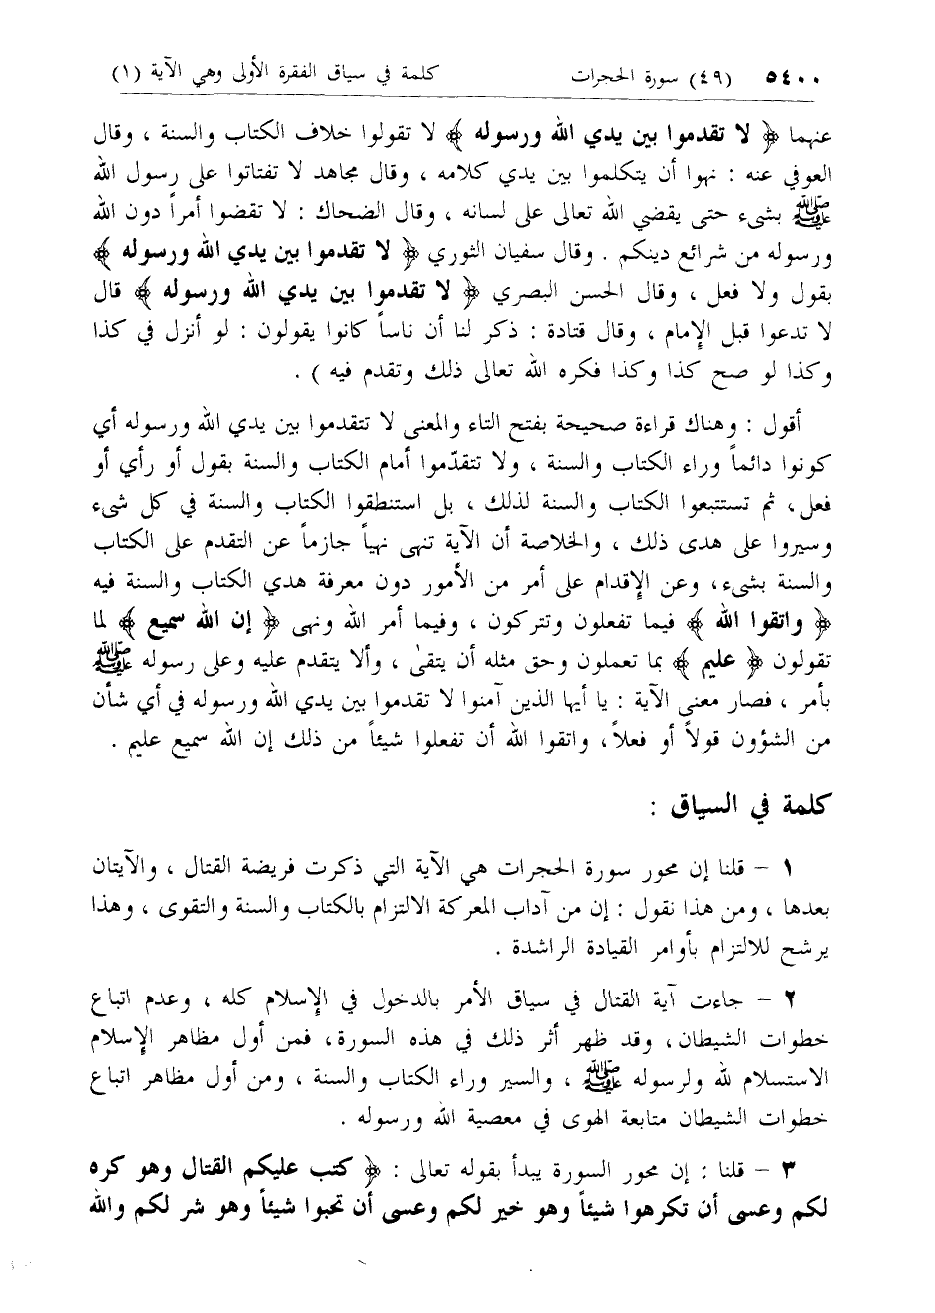 ٥٤٠٠ (٤٩) سورة الحجرات كلمة في سياق الفقرة الأولى وهي الآية (١)
عنهما ﴿ لا تقدموا بين يدي الله ورسوله ﴾ لا تقولوا خلاف الكتاب والسنة ، وقال
العوفي عنه : نهوا أن يتكلموا بين يدي كلامه ، وقال مجاهد لا تفتاتوا على رسول الله
ﷺ بشيء حتى يقضي الله تعالى على لسانه ، وقال الضحاك : لا تقضوا أمراً دون الله
ورسوله من شرائع دينكم . وقال سفيان الثوري ﴿ لا تقدموا بين يدي الله ورسوله ﴾
بقول ولا فعل ، وقال الحسن البصري ﴿ لا تقدموا بين يدي الله ورسوله ﴾ قال
لا تدعوا قبل الإمام ، وقال قتادة : ذكر لنا أن ناساً كانوا يقولون : لو أنزل في كذا
وكذا لو صح كذا وكذا فكره الله تعالى ذلك وتقدم فيه ) .
أقول : وهناك قراءة صحيحة بفتح التاء والمعنى لا تتقدموا بين يدي الله ورسوله أي
كونوا دائماً وراء الكتاب والسنة ، ولا تتقدّموا أمام الكتاب والسنة بقول أو رأي أو
فعل، ثم تستتبعوا الكتاب والسنة لذلك ، بل استنطقوا الكتاب والسنة في كل شيء
وسيروا على هدى ذلك ، والخلاصة أن الآية تنهى نهياً جازماً عن التقدم على الكتاب
والسنة بشيء، وعن الإقدام على أمر من الأمور دون معرفة هدي الكتاب والسنة فيه
﴿ واتقوا الله ﴾ فيما تفعلون وتتركون ، وفيما أمر الله ونهى ﴿ إن الله سميع ﴾ لما
تقولون ﴿ عليم ﴾ بما تعملون وحق مثله أن يتقىٰ ، وألا يتقدم عليه وعلى رسوله ﷺ
بأمر ، فصار معنى الآية : يا أيها الذين آمنوا لا تقدموا بين يدي الله ورسوله في أي شأن
من الشؤون قولاً أو فعلاً، واتقوا الله أن تفعلوا شيئاً من ذلك إن الله سميع عليم .
كلمة في السياق :
١ – قلنا إن محور سورة الحجرات هي الآية التي ذكرت فريضة القتال ، والآيتان
بعدها ، ومن هذا نقول : إن من آداب المعركة الالتزام بالكتاب والسنة والتقوى ، وهذا
يرشح للالتزام بأوامر القيادة الراشدة .
٢ – جاءت آية القتال في سياق الأمر بالدخول في الإسلام كله ، وعدم اتباع
خطوات الشيطان، وقد ظهر أثر ذلك في هذه السورة، فمن أول مظاهر الإسلام
الاستسلام لله ولرسوله ﷺ ، والسير وراء الكتاب والسنة ، ومن أول مظاهر اتباع
خطوات الشيطان متابعة الهوى في معصية الله ورسوله .
٣ – قلنا : إن محور السورة يبدأ بقوله تعالى : ﴿ كتب عليكم القتال وهو كره
لكم وعسى أن تكرهوا شيئاً وهو خير لكم وعسى أن تحبوا شيئاً وهو شر لكم والله